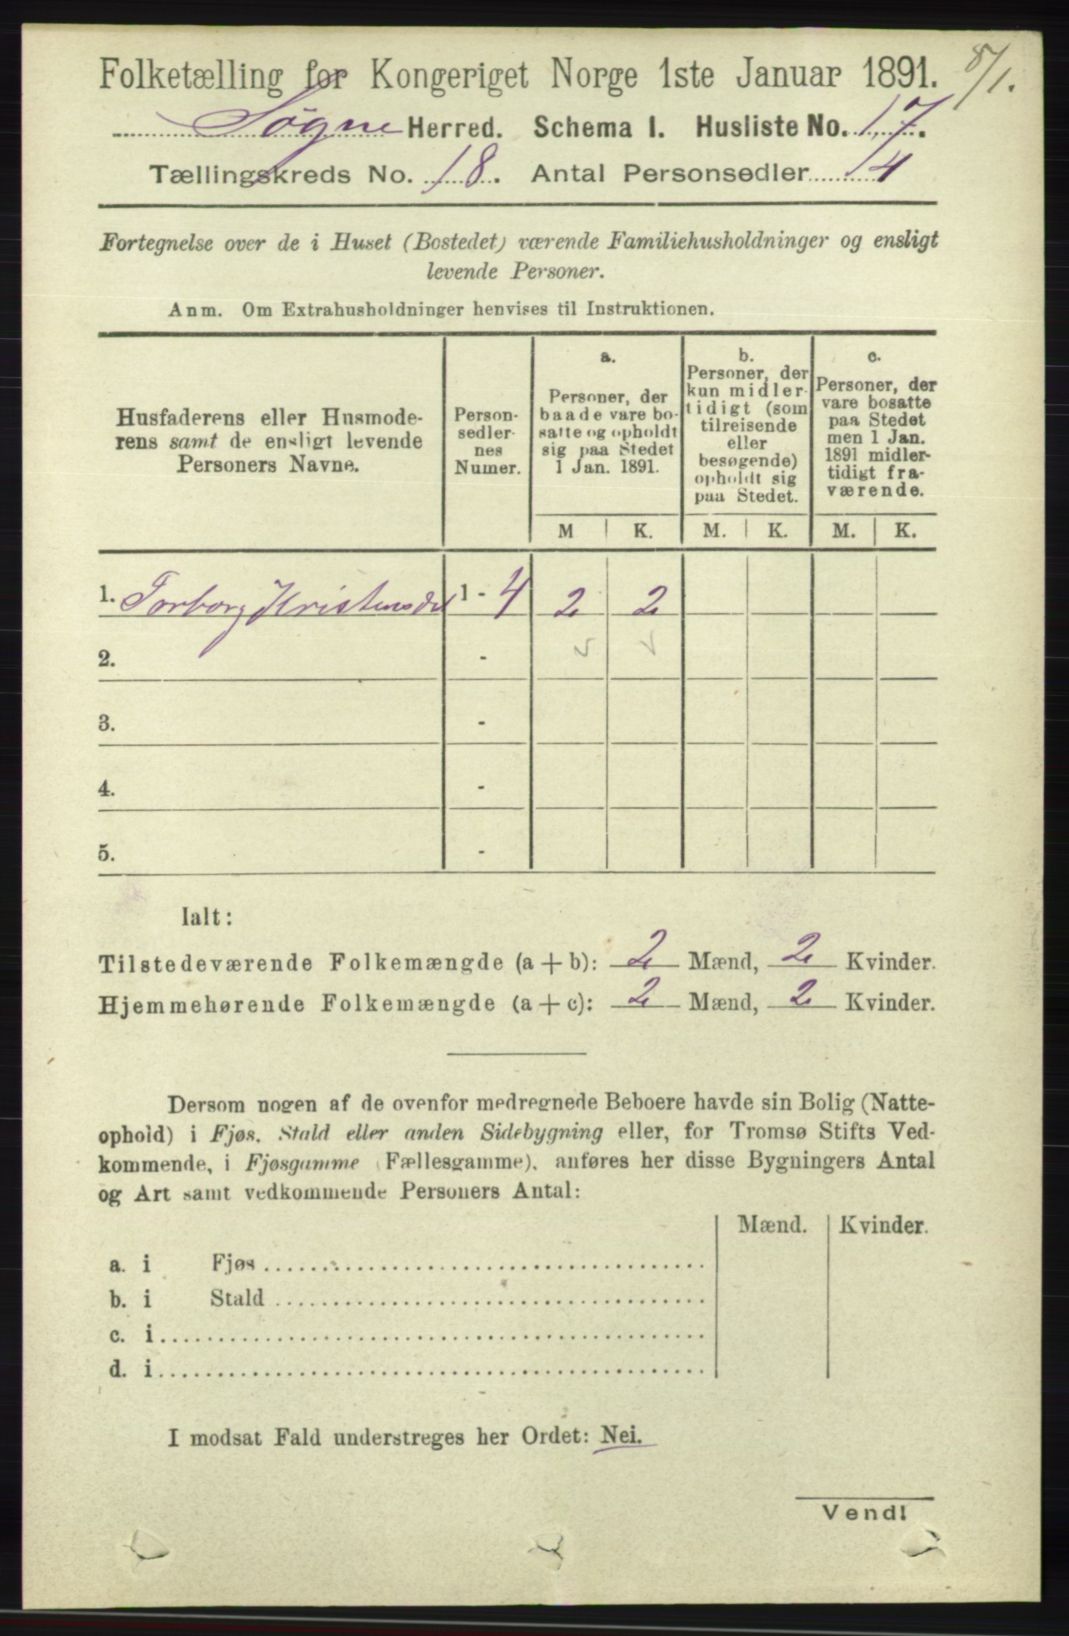 8/1.
Folketælling for Kongeriget Norge 1ste Januar 1891.
Søgne Herred. Schema I. Husliste No. 17.
Tællingskreds No. 18. Antal Personsedler 4
Fortegnelse over de i Huset (Bostedet) værende Familiehusholdninger og ensligt
levende Personer.
Anm. Om Extrahusholdninger henvises til Instruktionen.
Husfaderens eller Husmode-
rens samt de ensligt levende
Personers Navne.
Person-
sedler-
nes
Numer.
a.
Personer, der
baade vare bo-
satte og opholdt
sig paa Stedet
1 Jan. 1891.
b.
Personer, der
kun midler-
tidigt (som
tilreisende
eller
besøgende)
opholdt sig
paa Stedet.
c.
Personer, der
vare bosatte
paa Stedet
men 1 Jan.
1891 midler-
tidigt fra-
værende.
M K. M. K. M. K.
1. Torborg Kristensdt 1 - 4 2 2
2. -
3. -
4. -
5. -
Ialt:
Tilstedeværende Folkemængde (a + b): 2 Mænd, 2 Kvinder.
Hjemmehørende Folkemængde (a + c): 2 Mænd, 2 Kvinder.
Dersom nogen af de ovenfor medregnede Beboere havde sin Bolig (Natte-
ophold) i Fjøs, Stald eller anden Sidebygning eller, for Tromsø Stifts Ved-
kommende, i Fjøsgamme (Fællesgamme), anføres her disse Bygningers Antal
og Art samt vedkommende Personers Antal:
Mænd. Kvinder.
a. i Fjøs
b. i Stald
c. i
d. i
I modsat Fald understreges her Ordet: Nei.
Vend!